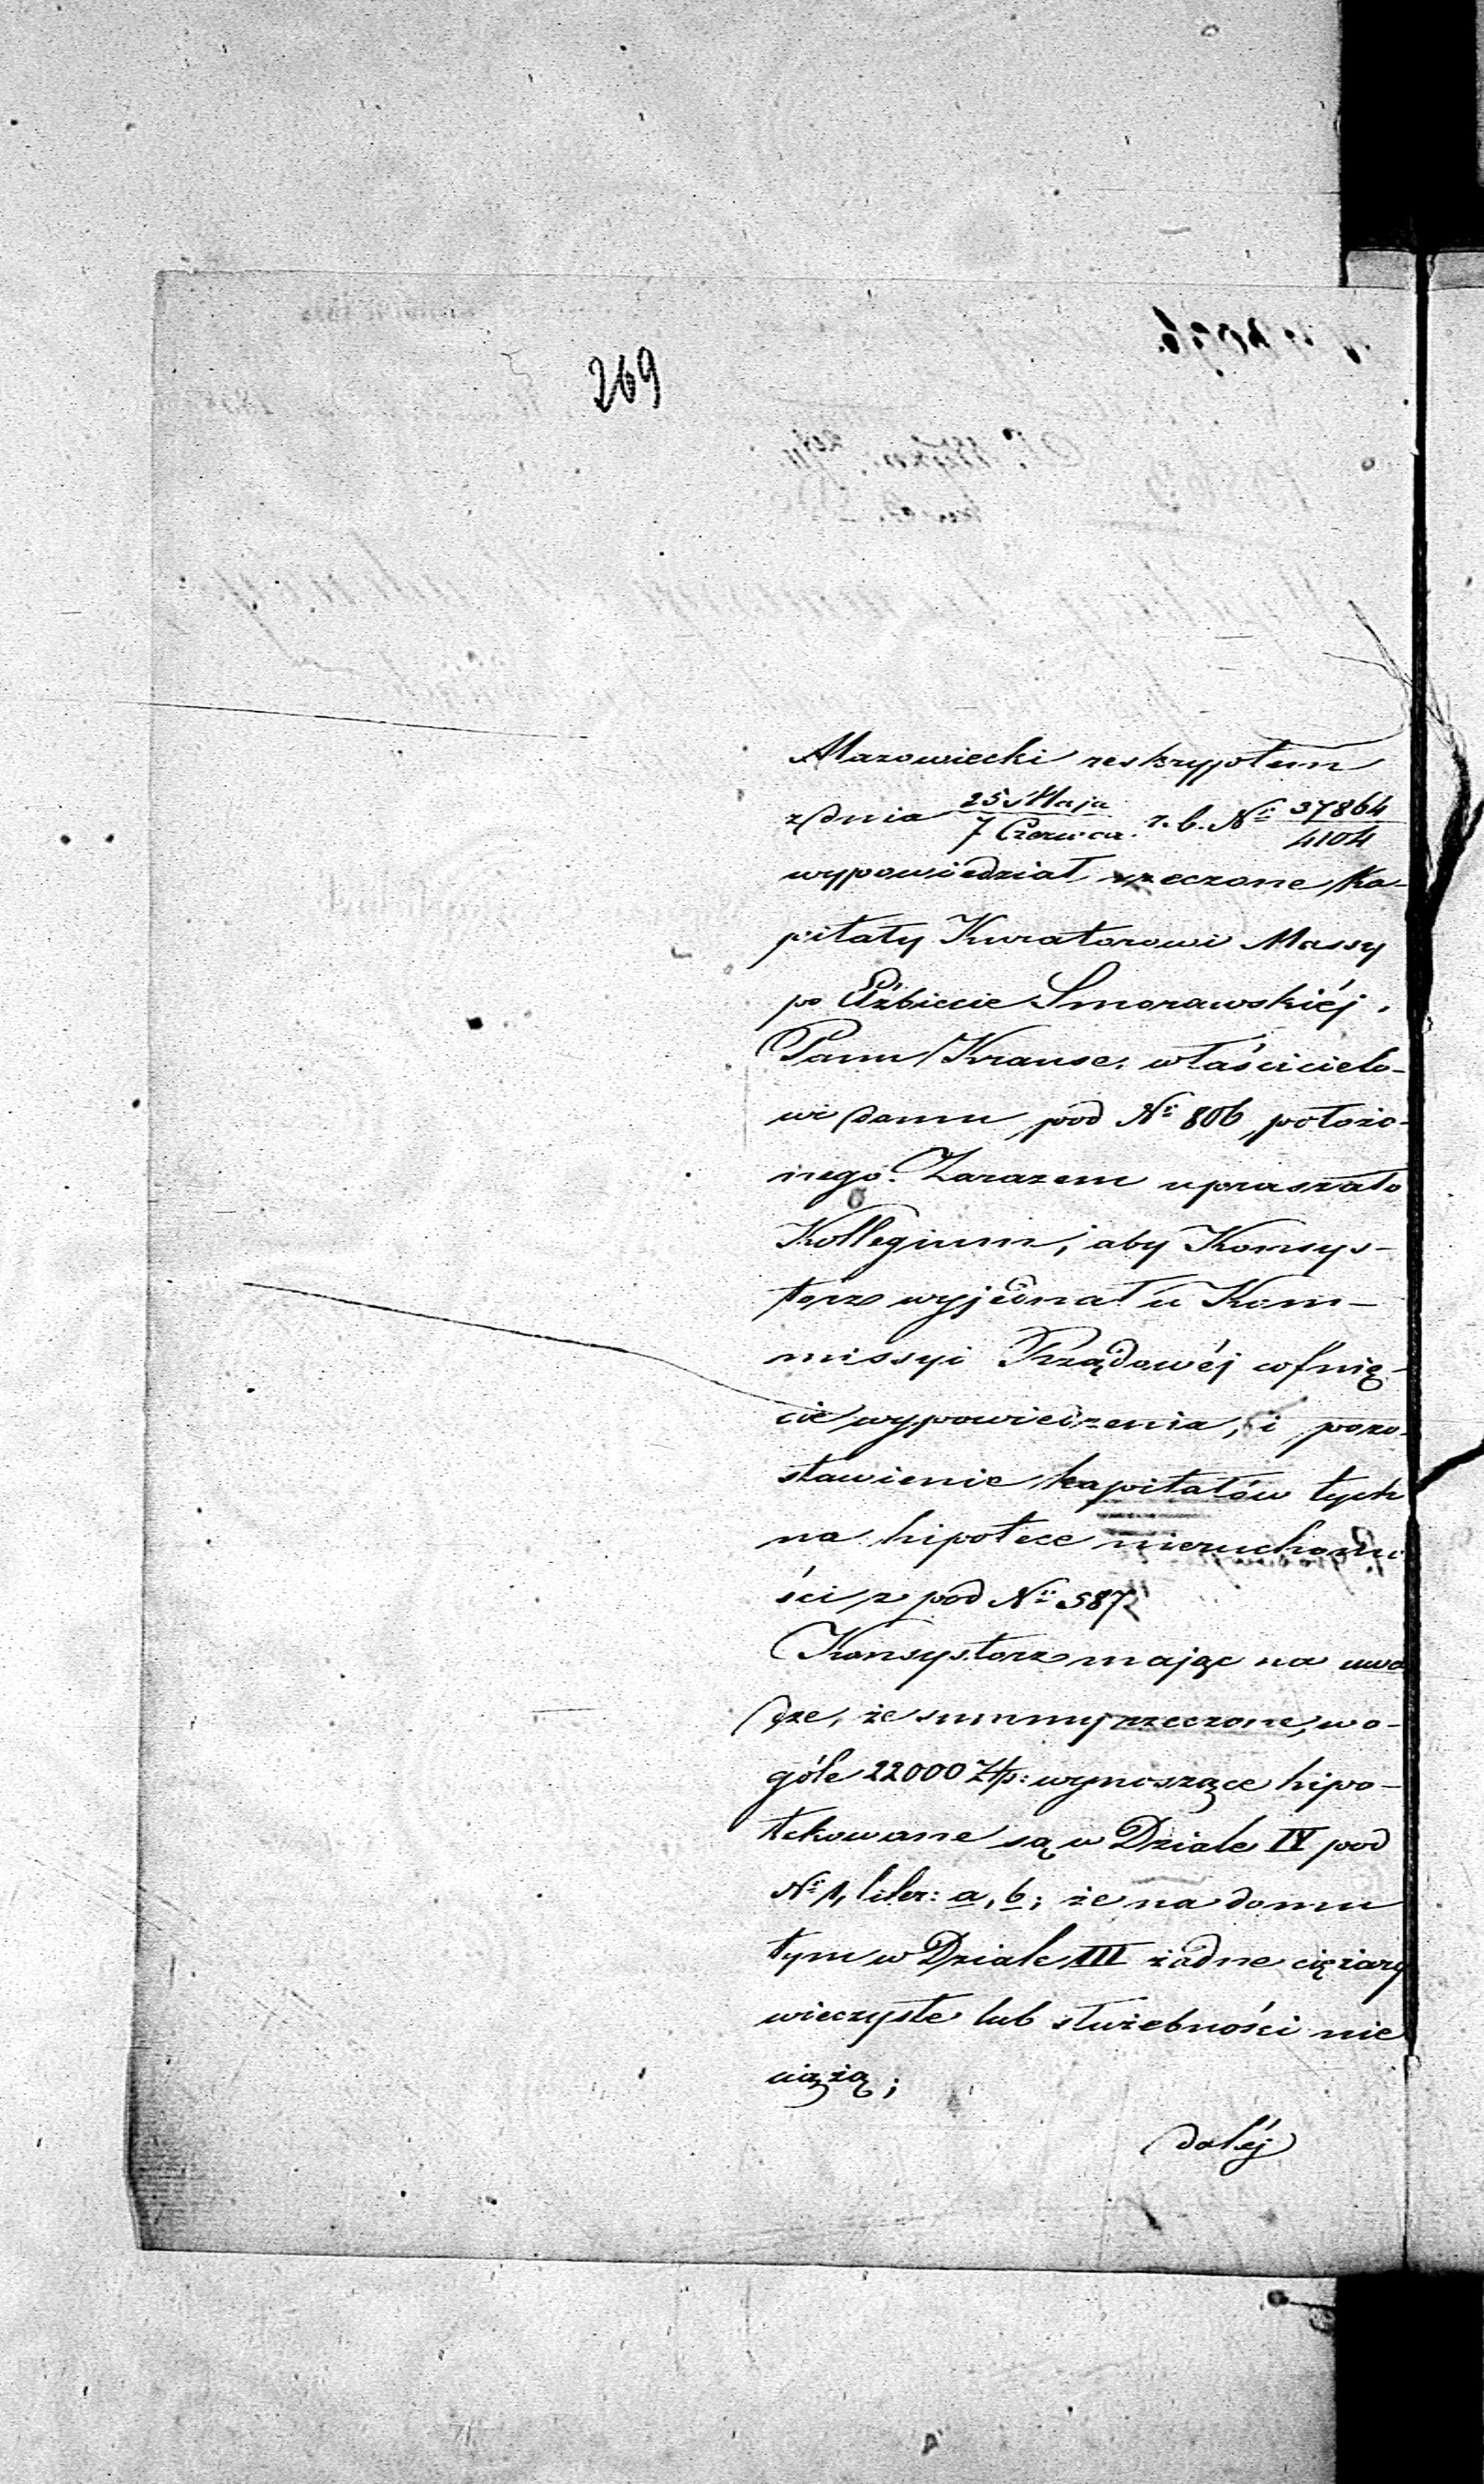 269
Mazowiecki reskryptem
z dnia 25 Maja / 7 Czerwca r. b. № 37864 / 4104
wypowiedział rzeczone Ka-
pitały Kuratorowi Massy
po Elżbiecie Smorawskiéj,
Panu Krause, właścicielo-
wi domu pod № 806 położo-
nego. Zarazem upraszało
Kollegium, aby Konsys-
torz wyjednał u Kom-
missyi Rządowéj cofnię-
cie wypowiedzenia, i pozo-
stawienie kapitałów tych
na hipotece nieruchomo
ści z pod № 587
Konsystorz mając na uwa
dze, że summy rzeczone, wo-
góle 22000 Złp: wynoszące hipo-
tekowane są w Dziale IV pod
№ 1, liter: a, b; że na domu
tym w Dziale III żadne ciężary
wieczyste lub służebności nie
ciążą;
daléj